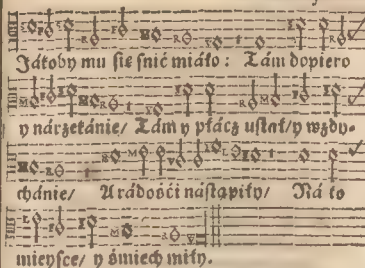 Jákoby mu ſie ſnić miáło: Tám dopiero
y nárzekánie/ Tám y płácz uſtał/ y wzdy-
chánie/ A rádośći náſtąpiły/ Ná to
mieyſce/ y śmiech miły.